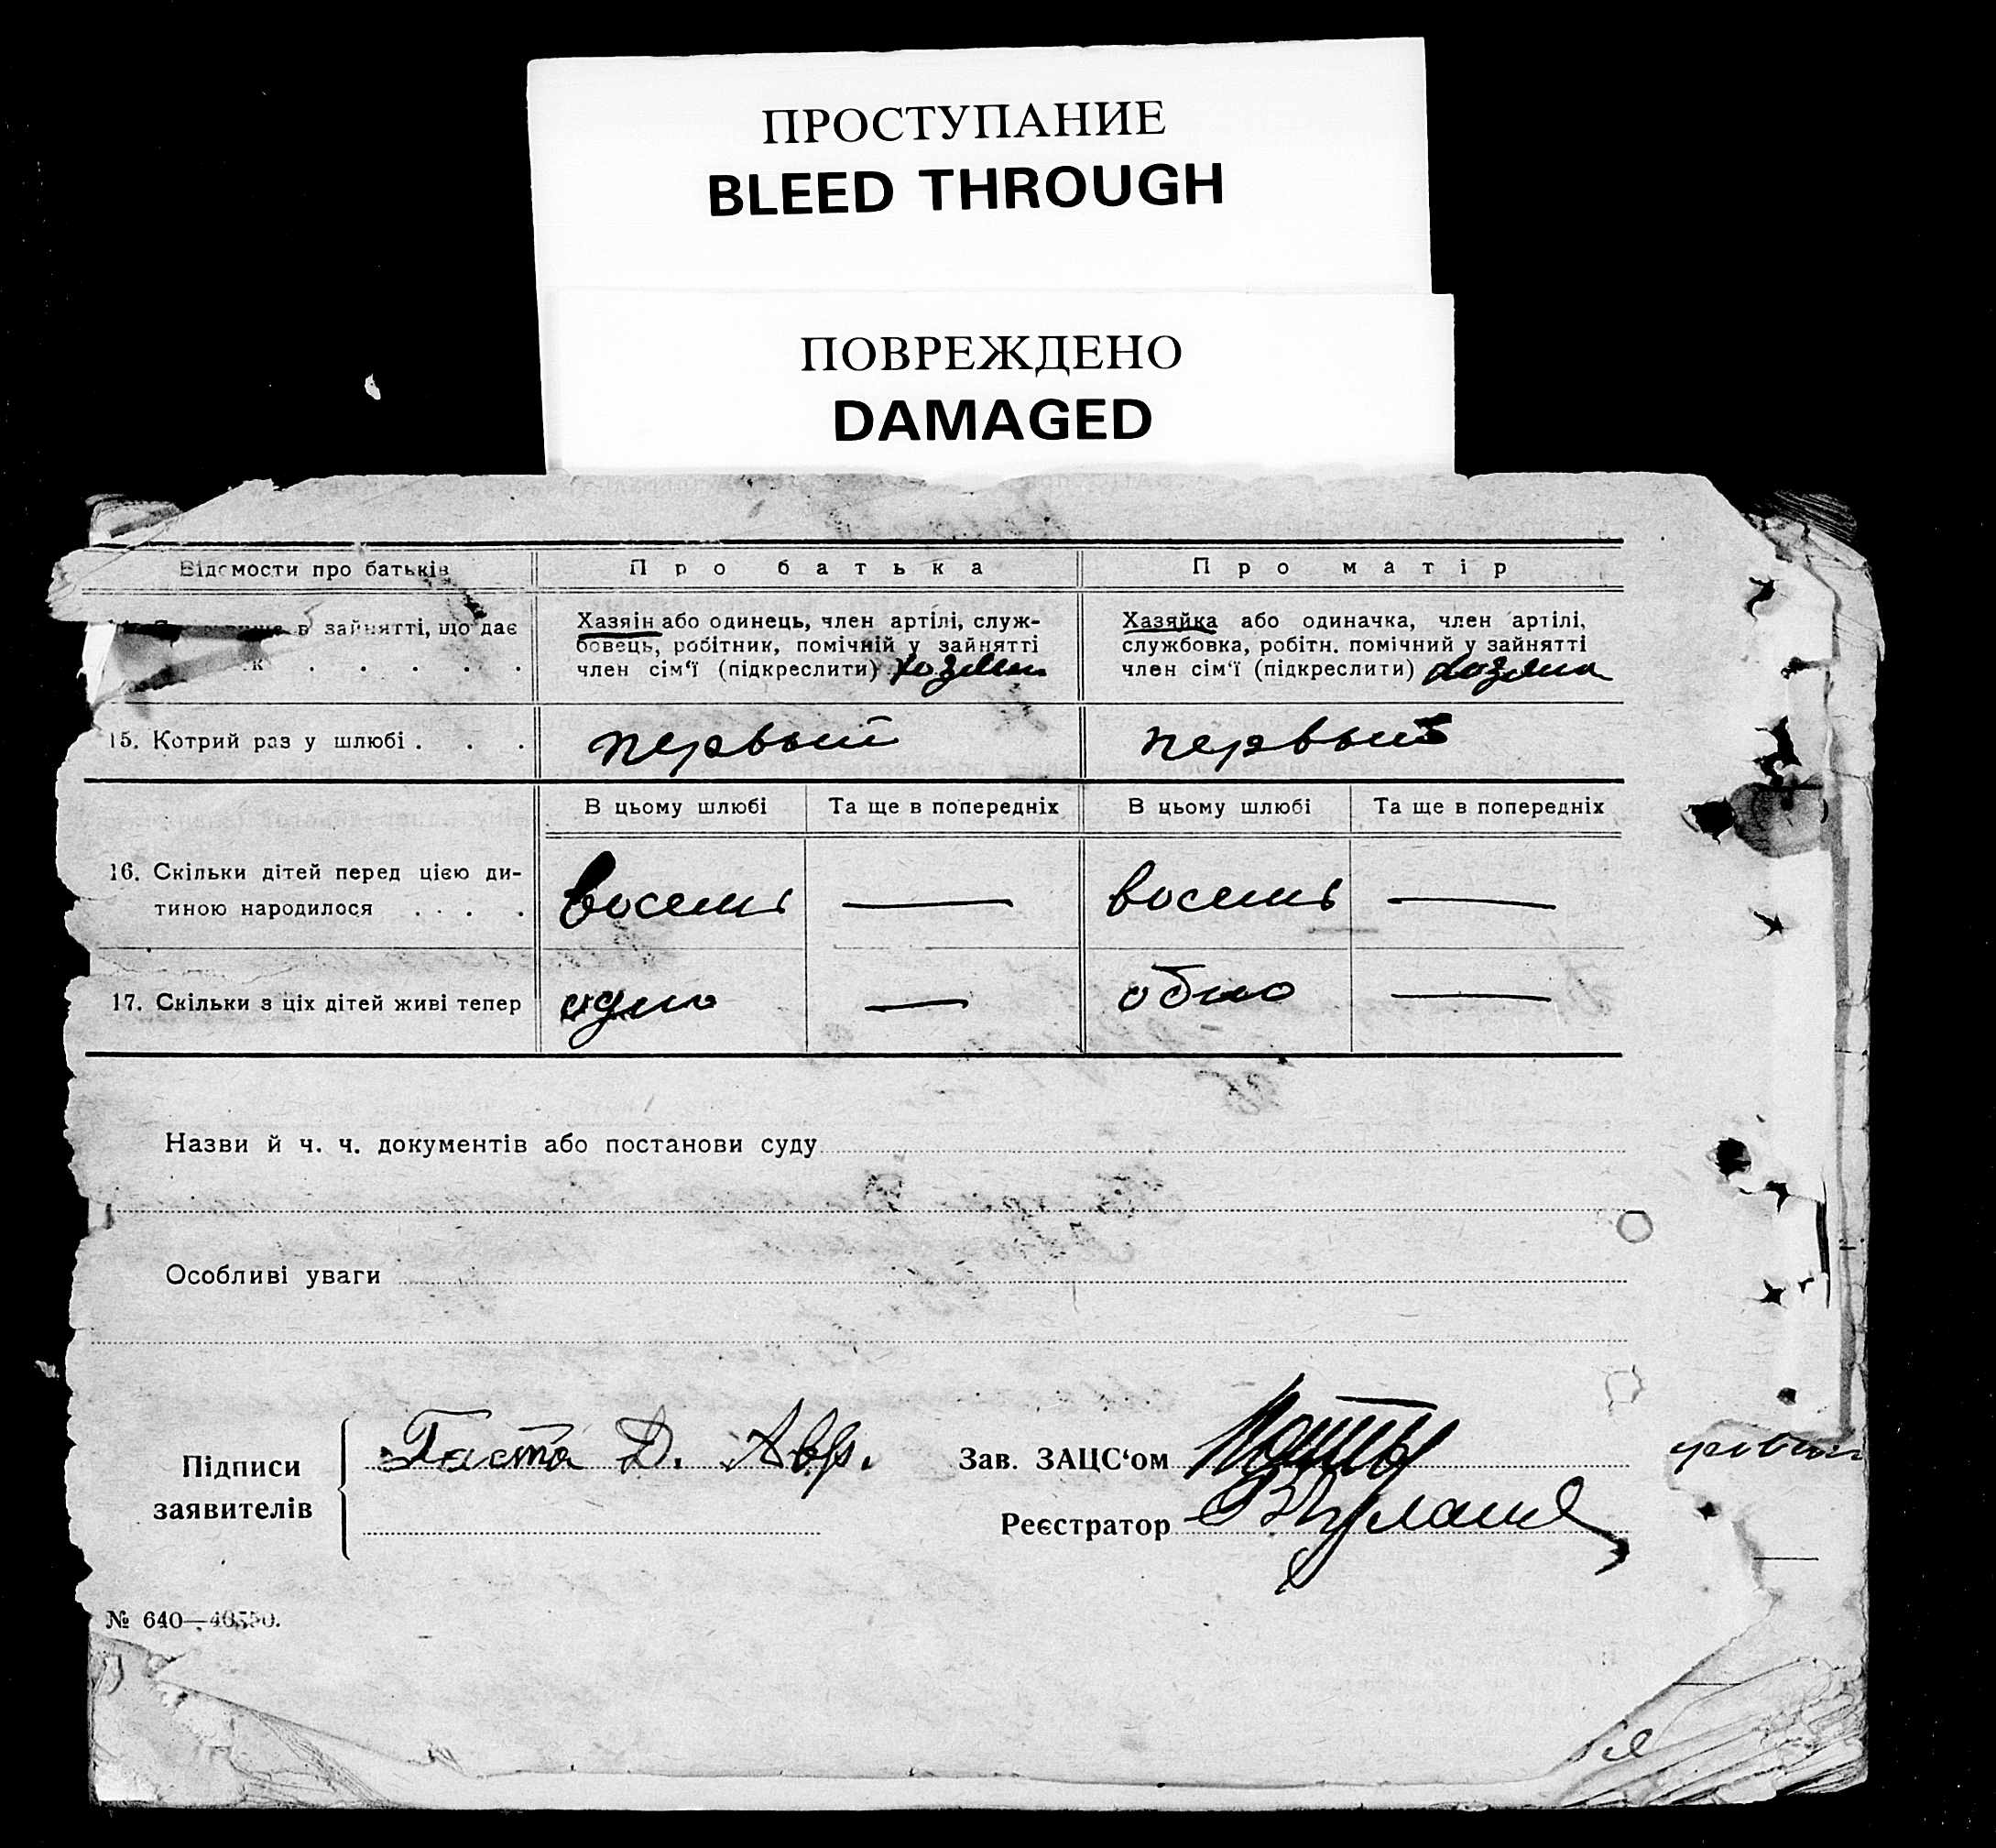 ПРОСТУПАНИЕ
BLEED THROUGH
ПОВРЕЖДЕНО
DAMAGED
Відомости про батьків
Про батька
Про матір
в зайнятті, що дає
Хазяїн або одинець, член артілі, служ-
бовець, робітник, помічній у зайнятті
член сім‘ї (підкреслити)
Хазяйка або одиначка, член артілі,
службовка, робітн. помічний у зайнятті
член сім‘ї (підкреслити)
15. Котрий раз у шлюбі . . .
первый
первый
В цьому шлюбі
Та ще в попередніх
В цьому шлюбі
Та ще в попередніх
16. Скільки дітей перед цією ди-
тиною народилося . . . .
восемь
—
восемь
—
17. Скільки з ціх дітей живі тепер
одно
—
одно
—
Назви й ч. ч. документів або постанови суду
Особливі уваги
Підписи
заявителів
Гаста Д. Авр.
Зав. ЗАЦС‘ом
Реєстратор
№ 640—